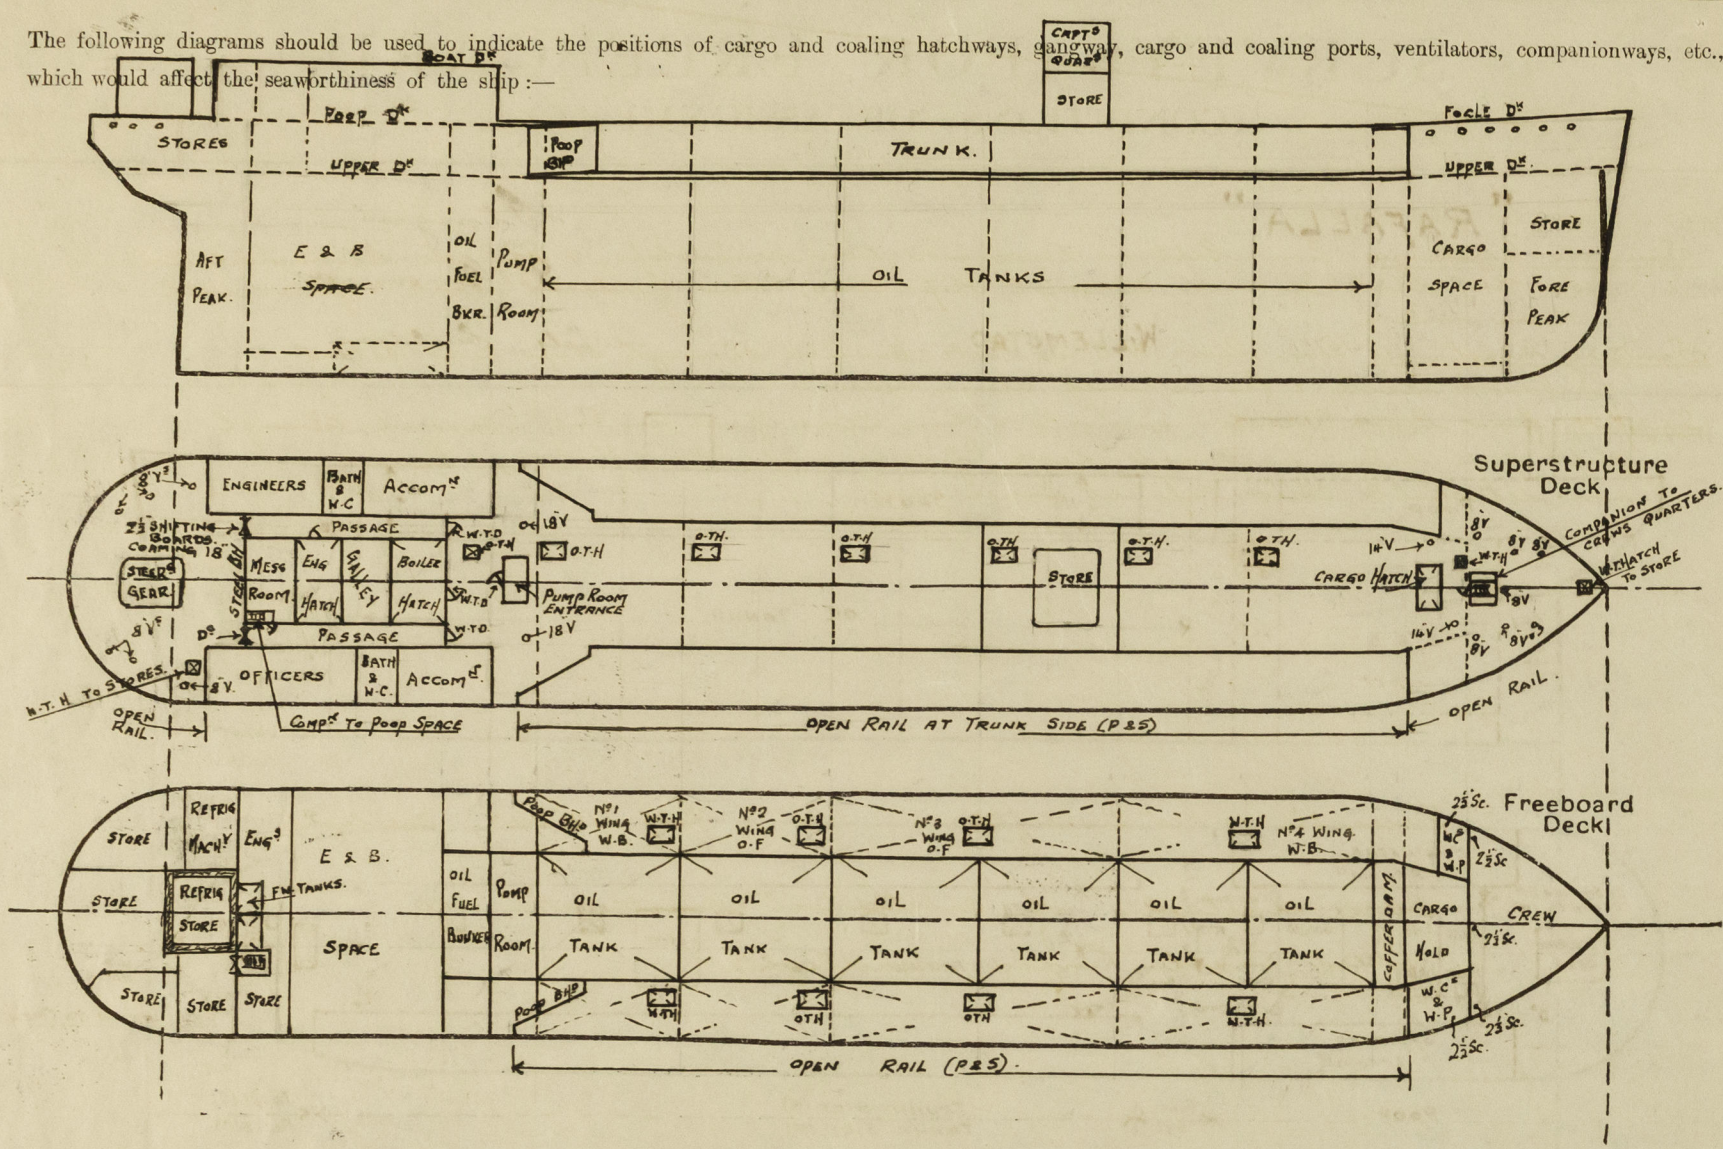 The following diagrams should be used to indicate the positions of cargo and coaling hatchways, gangway, cargo and coaling ports, ventilators, companionways, etc.,
which would affect the seaworthiness of the ship :—
CAPTS
QUARS
STORE
BOAT DK
POOP DK
FOCLE DK
STORES
POOP
BHD
TRUNK.
UPPER DK
UPPER DK.
"RAFAELA"
STORE
AFT
PEAK.
E & B
SPACE.
OIL
FUEL
BKR.
PUMP
ROOM
OIL TANKS
CARGO
SPACE
FORE
PEAK
WILLEMSTAD
Superstructure
Deck
ENGINEERS
BATH
&
W.C
ACCOMN
8"VS
2½" SHIFTING
BOARDS.
COAMING 18"
PASSAGE
W.T.D
O.T.H
18"V
O.T.H
O.T.H.
O.T.H.
O.T.H
O.T.H.
O.T.H.
14"V
8"V
8"V
8"V
W.T.H
COMPANION TO
CREWS QUARTERS.
W.T.HATCH
TO STORE
STEERG
GEAR
STEEL BH
MESS
ROOM.
ENG
HATCH
GALLEY
BOILER
HATCH
W.T.D
PUMP ROOM
ENTRANCE
STORE
CARGO HATCH
8"V
8"VS
DO
PASSAGE
W.T.D.
18"V
14"V
8"V
8"V
W.T.H TO STORES.
8"V.
OFFICERS
BATH
&
W.C.
ACCOMN.
OPEN
RAIL.
COMPN TO POOP SPACE
OPEN RAIL AT TRUNK SIDE (P&S)
OPEN RAIL.
Freeboard
Deck
STORE
REFRIG
MACHY
ENGS
E & B.
POOP BHD
No1
WING
W.B.
W.T.H
No2
WING
O.F
O.T.H
No3
WING
O.F
O.T.H
W.T.H
No4 WING
W.B.
2½"Sc.
WCS
&
W.P
2½"Sc
STORE
REFRIG
STORE
F.W.TANKS.
OIL
FUEL
BUNKER
PUMP
ROOM.
OIL
OIL
OIL
OIL
OIL
OIL
TANK
TANK
TANK
TANK
TANK
TANK
COFFERDAM.
CARGO
HOLD
CREW
2½"Sc.
SPACE
STORE
STORE
STORE
POOP BHD
W.T.H
O.T.H
O.T.H
W.T.H.
W.CS
&
W.P.
2½"Sc.
2½"Sc.
OPEN RAIL (P&S).